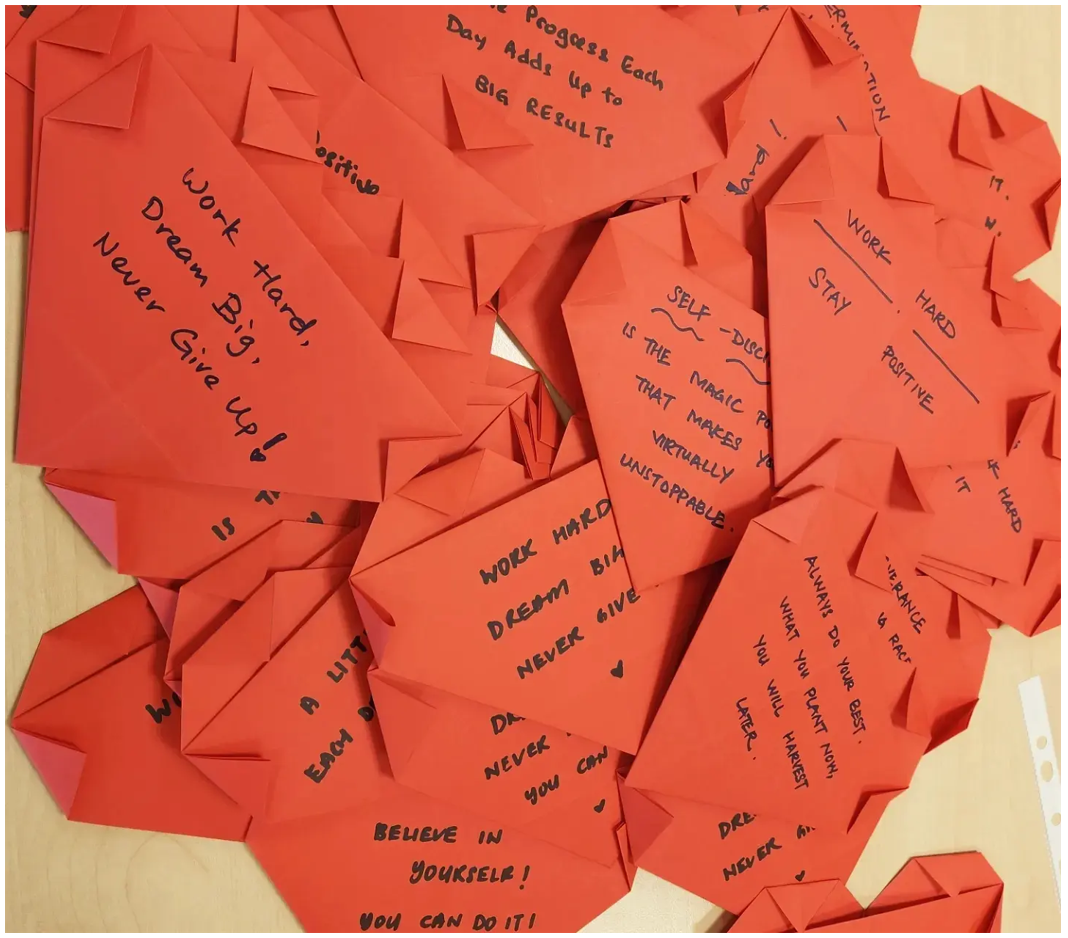 Progress Each
Day Adds Up to
BIG RESULTS
ositive
Work Hard,
Dream Big,
Never Give Up!
IT.
W.
WORK HARD
STAY POSITIVE
SELF-DISCI
IS THE MAGIC PO
THAT MAKES YO
VIRTUALLY
UNSTOPPABLE.
HARD
IT
IS
WORK HARD
DREAM BI
NEVER GIVE
ALWAYS DO YOUR BEST.
WHAT YOU PLANT NOW,
YOU WILL HARVEST
LATER.
VERANCE
A LITT
EACH D
NEVER
YOU CAN
DRE
NEVER
BELIEVE IN
YOURSELF!
YOU CAN DO IT!